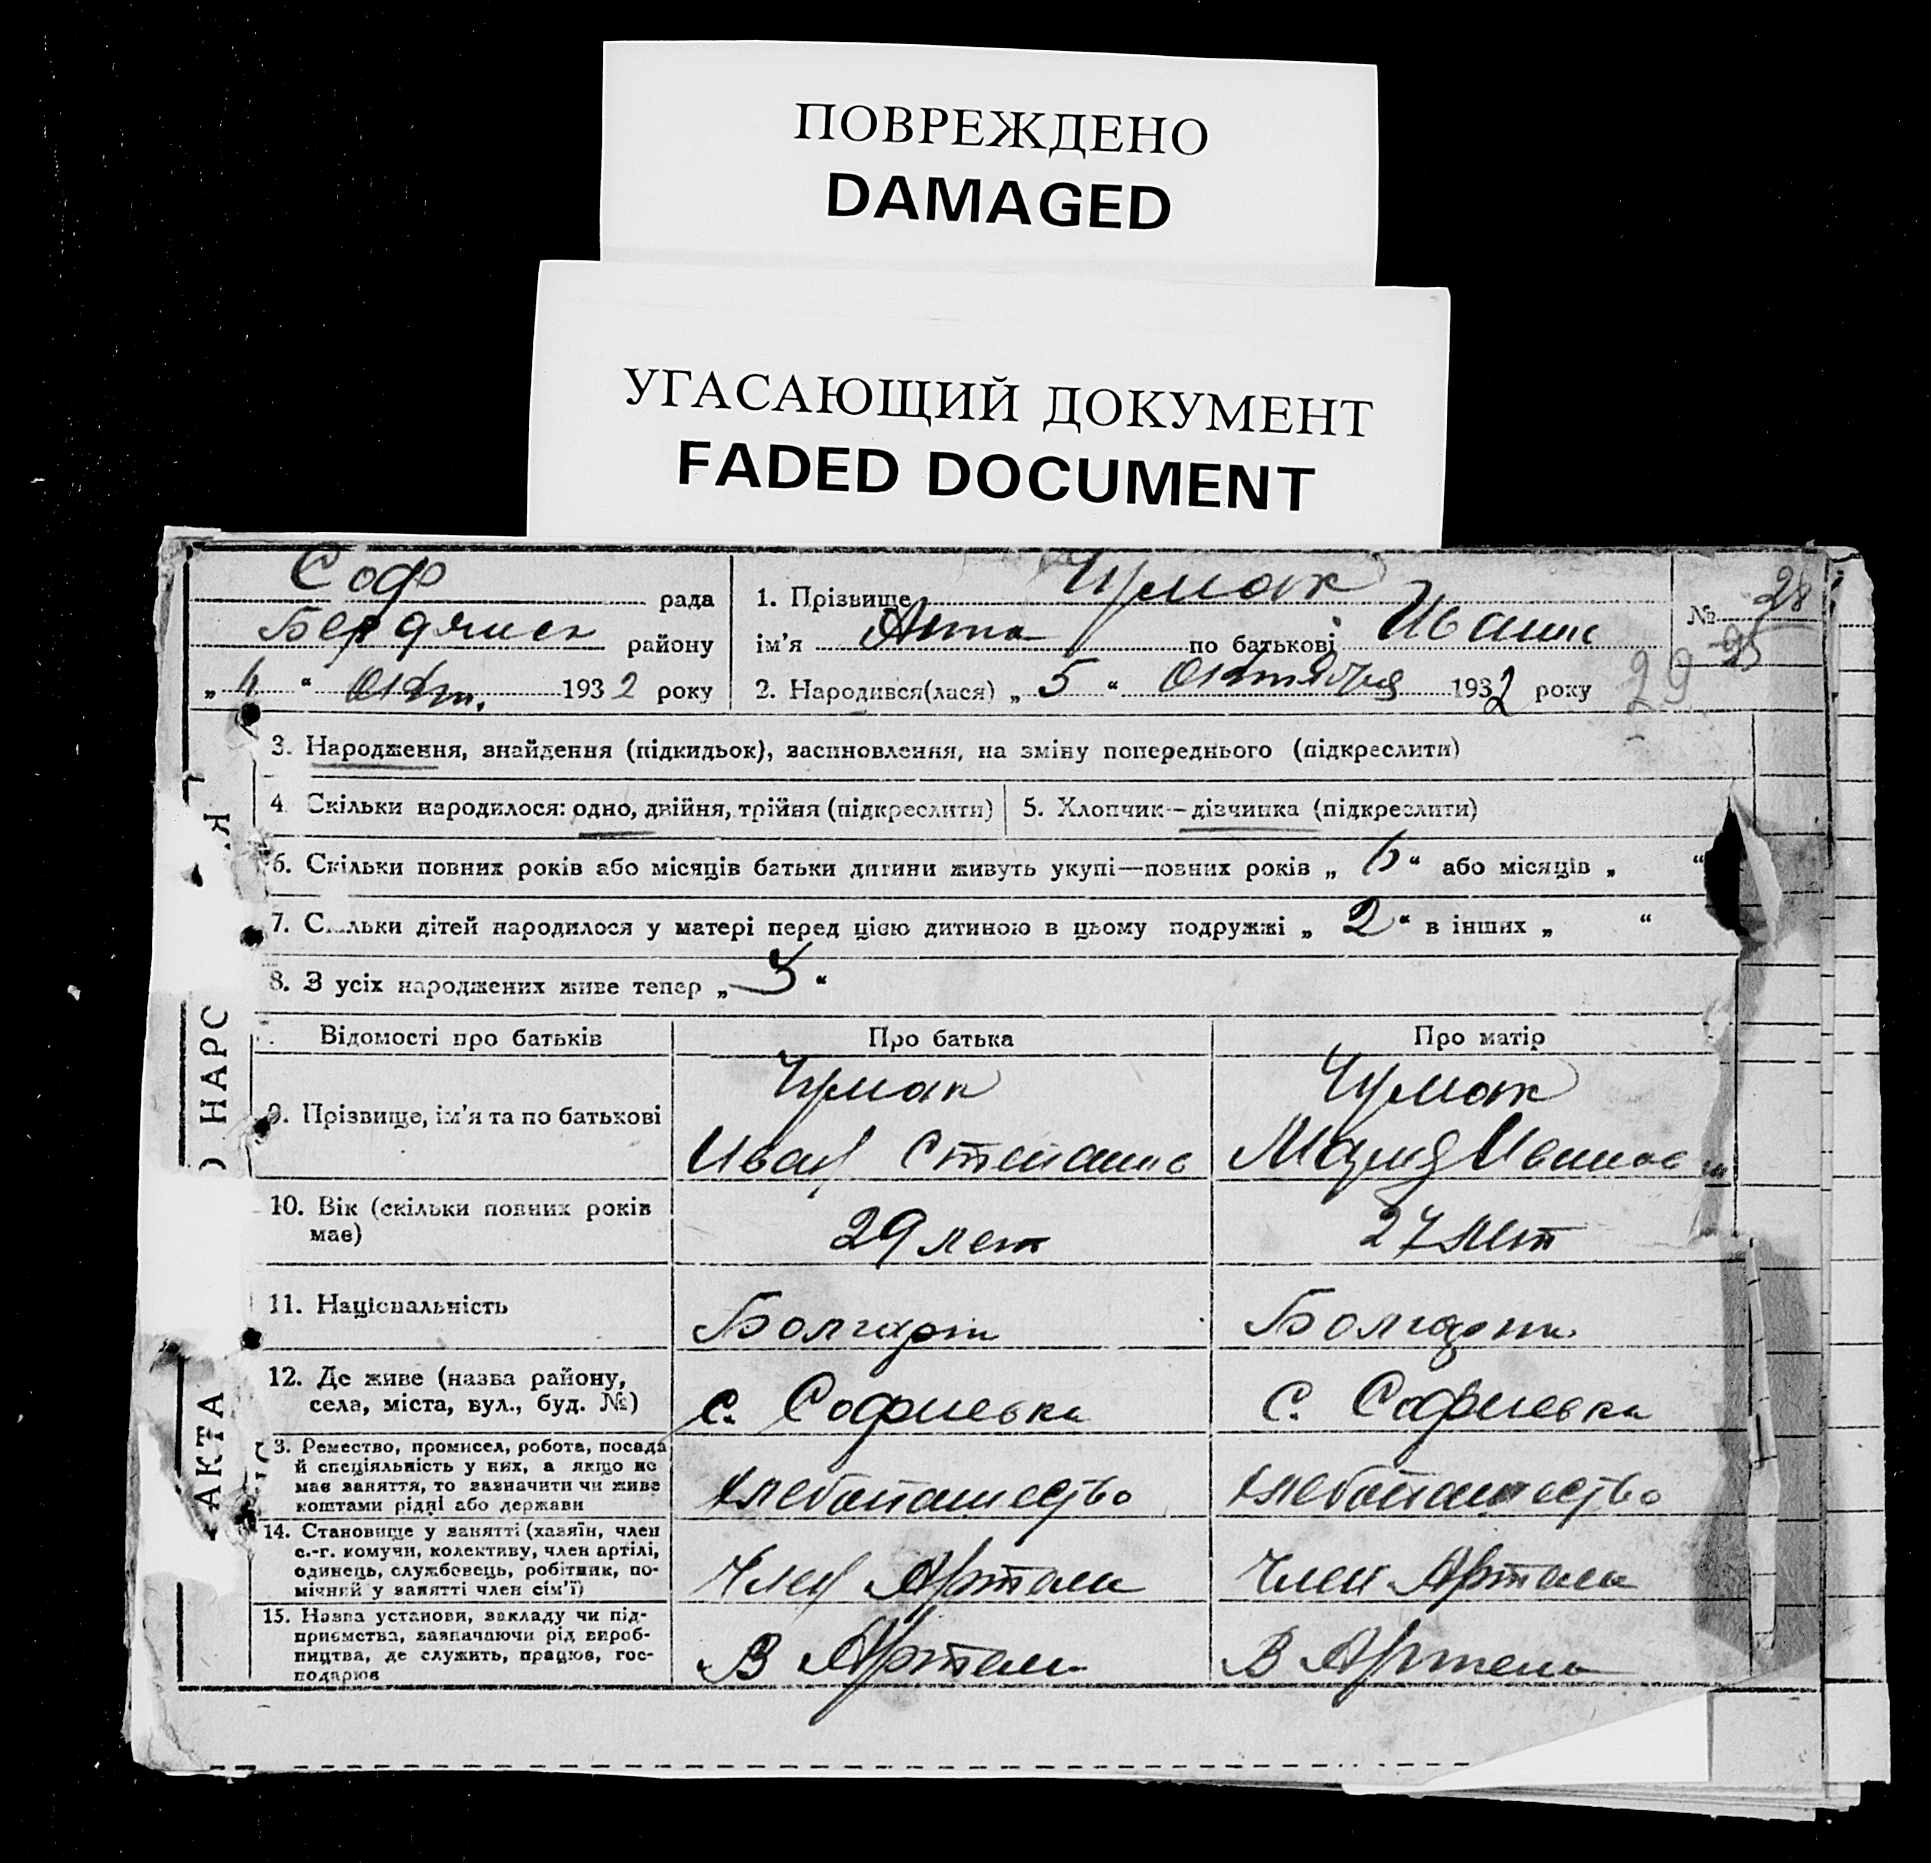 ПОВРЕЖДЕНО
DAMAGED
УГАСАЮЩИЙ ДОКУМЕНТ
FADED DOCUMENT
Соф рада
Бердянск району
„ “ Окт. 1932 року
1. Прізвище Чумак
ім'я Анна по батькові Иванн
2. Народився(лася) „ 5 “ Октября 1932 року
№ 28
25
29
3. Народження, знайдення (підкидьок), засиновлення, на зміну попереднього (підкреслити)
4 Скільки народилося: одно, двійня, трійня (підкреслити)
5. Хлопчик—дівчинка (підкреслити)
6. Скільки повних років або місяців батьки дитини живуть укупі—повних років „ 6 “ або місяців „ “
7. С..льки дітей народилося у матері перед цією дитиною в цьому подружжі „ 2 “ в інших „ “
8. З усіх народжених живе тепер „ “
Відомості про батьків Про батька Про матір
9. Прізвище, ім'я та по батькові
Чумак
Иван Степанов
Чумак
Мария Иванов
10. Вік (скільки повних років
має)
29 лет
27 лет
11. Національність
Болгарин
Болгарин
12. Де живе (назва району,
села, міста, вул., буд. №)
с. Софиевка
с. Софиевка
3. Ремество, промисел, робота, посада
й спеціяльність у них, а якщо не
має заняття, то зазначити чи живе
коштами рідні або держави
хлебопашество
хлебопашество
14. Становище у занятті (хазяїн, член
с.-г. комуни, колективу, член артілі,
одинець, службовець, робітник, по-
мічний у занятті член сім'ї)
Член Артели
Член Артели
15. Назва установи, закладу чи під-
приємства, зазначаючи рід вироб-
ництва, де служить, працює, гос-
подарює
В Артели
В Артели
Я
О НАРС
АКТА